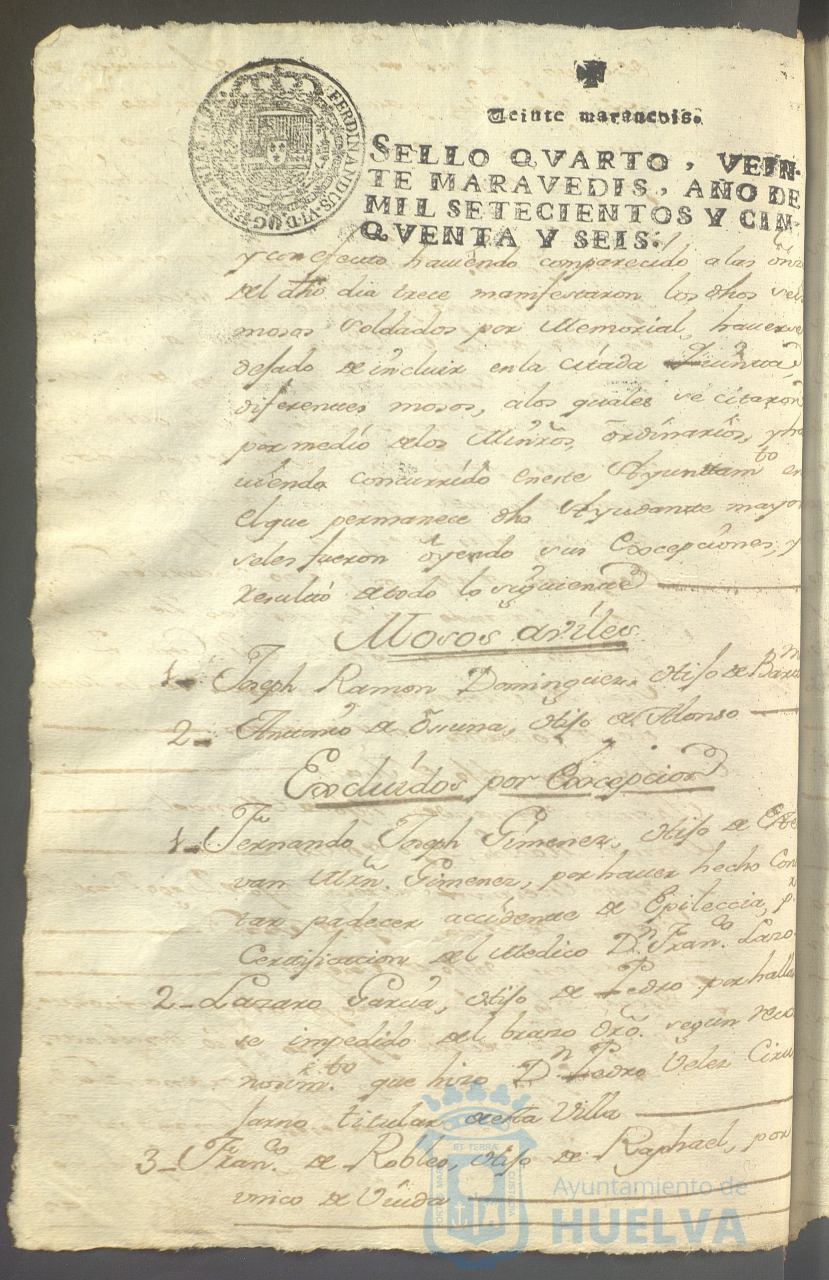 FERDINANDUS·VI·D·G·HISPANIAR·REX
Veinte maravedis.
SELLO QVARTO, VEIN-
TE MARAVEDIS, AÑO DE
MIL SETECIENTOS Y CIN-
QVENTA Y SEIS.
y con efecto haviendo comparecido a las
del dho dia trece manifestaron los dhos
mosos Soldados por Memorial, haverse
dejado de incluir en la citada Quinta
diferentes mosos, a los quales se citaron
por medio de los Minros ordinarios, y ha
viendo concurrido en este Ayuntamto en
el que permanece dho Ayudante mayor
seles fueron oyendo sus Excepciones, y
resultó de todo lo siguiente
Mosos aviles
1 - Joseph Ramon Dominguez, Hijo de
2 - Antonio de Ossuna, Hijo de Alonso
Excluidos por Excepcion
1 - Fernando Joseph Gimenez, Hijo de Este
van Mrn. Gimenez, por haver hecho Cons
tar padecer accidente de Epileccia, pr
Certificacion del Medico Dn. Franco. Lazo
2 - Lazaro Garcia, Hijo de Pedro por hallar
se impedido del brazo dro. segun reco
nosimto que hizo Dn Pedro Velez Ciru
jano titular de esta Villa
3 - Franco. de Robles, Hijo de Raphael, por
unico de Viuda
Ayuntamiento de
HUELVA